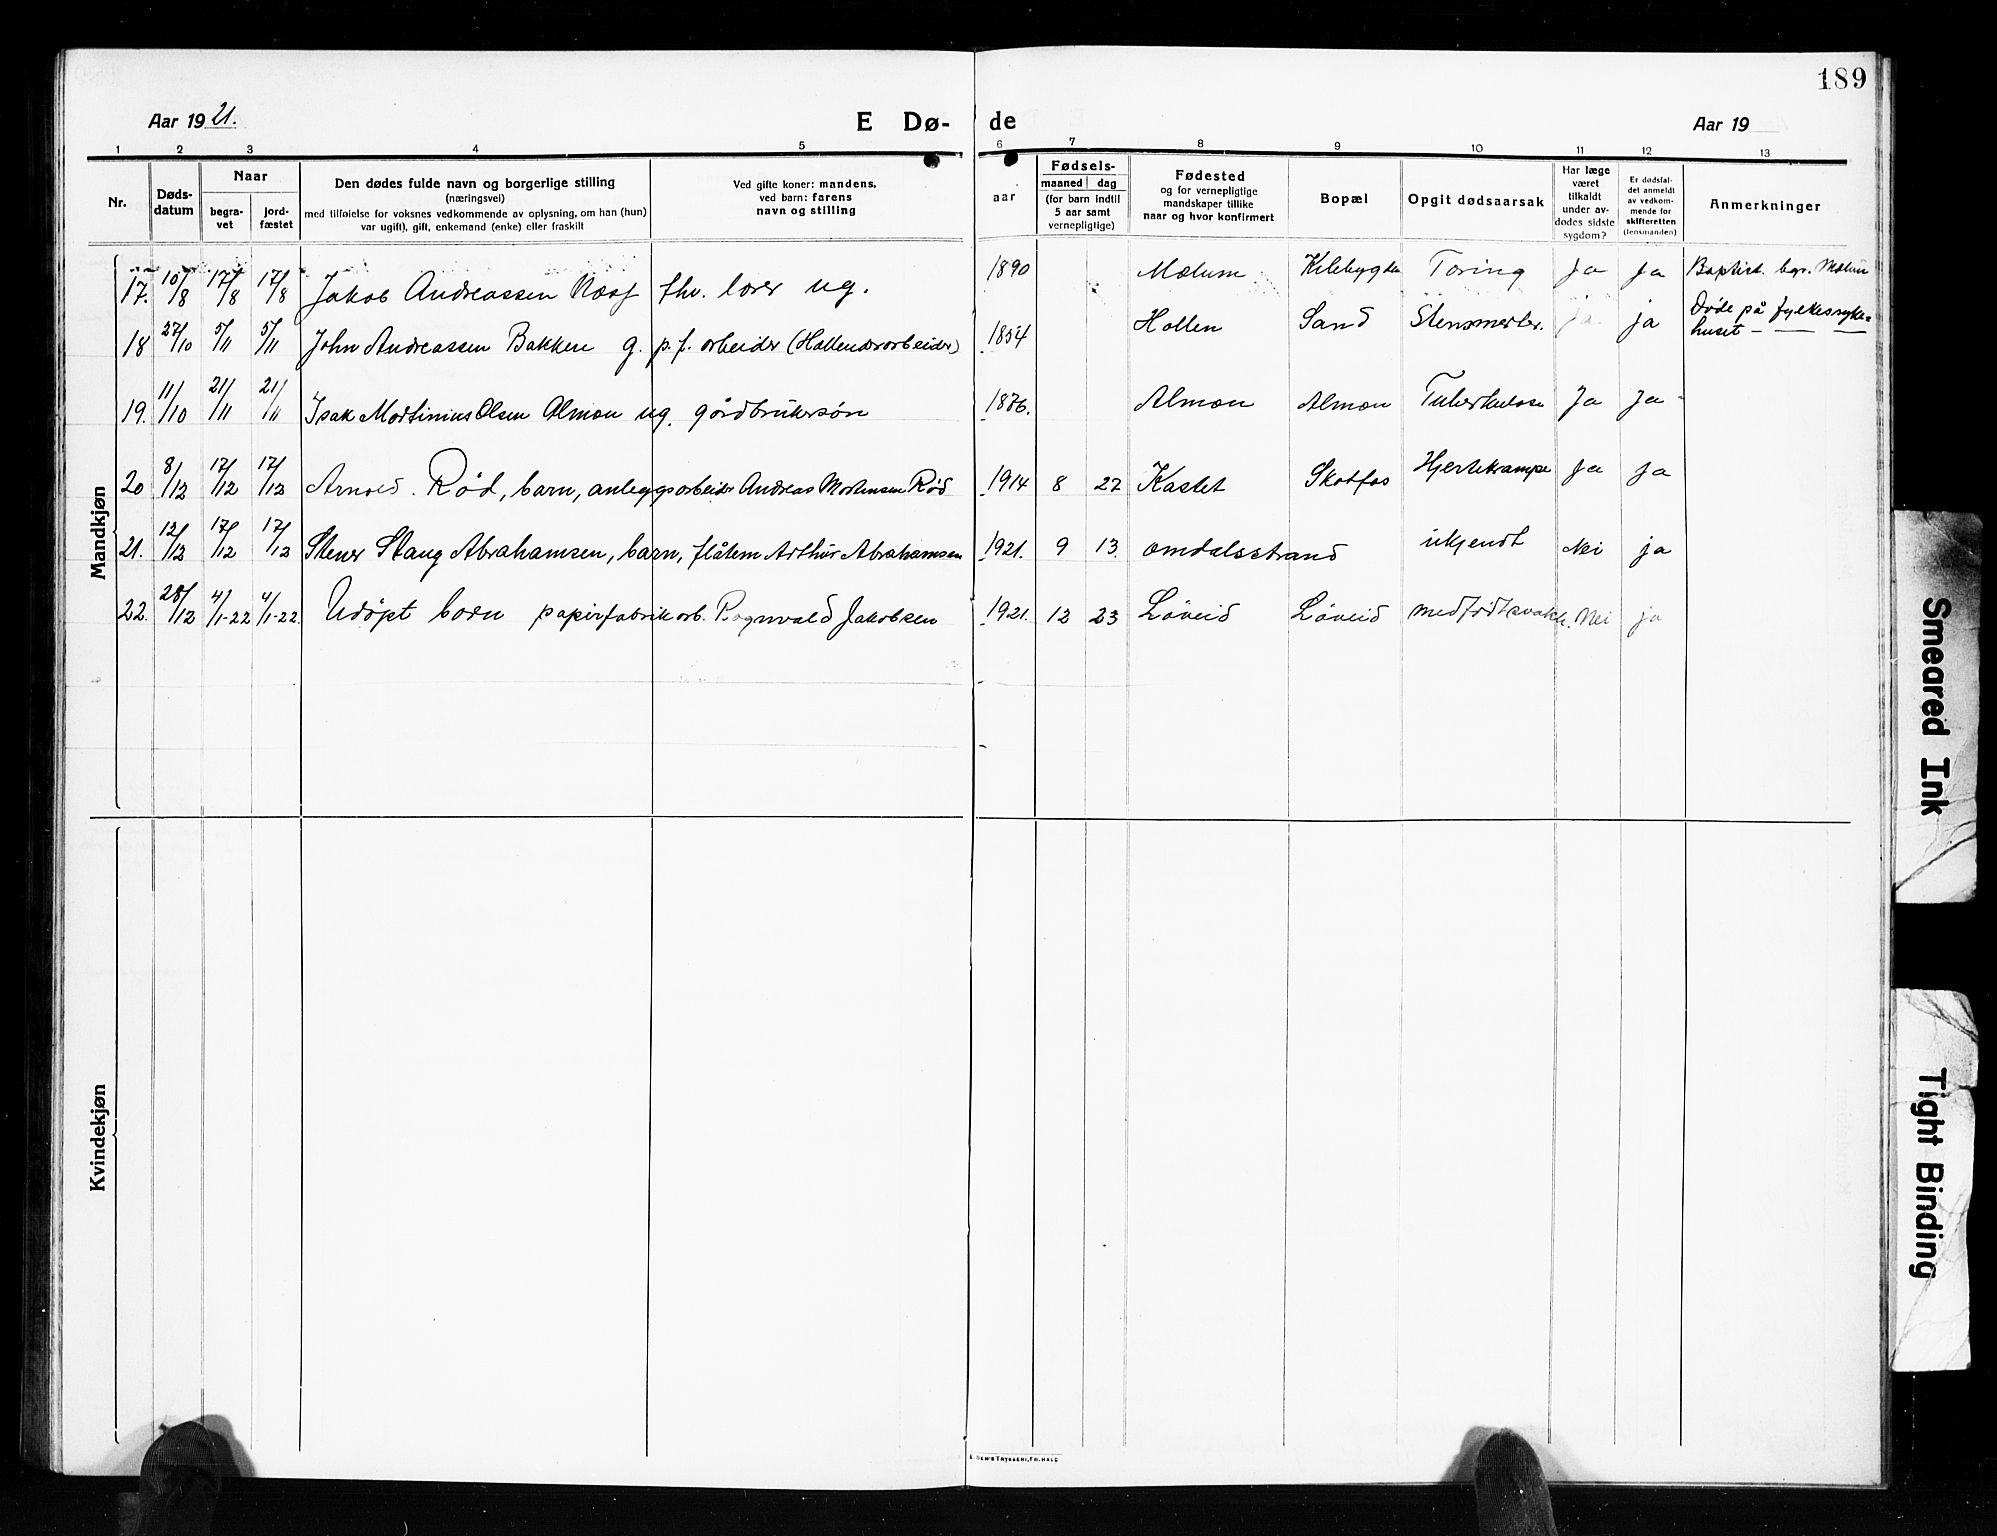 189
Aar 1921.
E Dø- de
Aar 19
1 2 3 4 5 6 7 8 9 10 11 12 13
Nr.
Døds-
datum
Naar
begra-
vet
jord-
fæstet
Den dødes fulde navn og borgerlige stilling
(næringsvei)
med tilføielse for voksnes vedkommende av oplysning, om han (hun)
var ugift), gift, enkemand (enke) eller fraskilt
Ved gifte koner: mandens,
ved barn: farens
navn og stilling
aar
Fødsels-
maaned dag
(for barn indtil
5 aar samt
vernepligtige)
Fødested
og for vernepligtige
mandskaper tillike
naar og hvor konfirmert
Bopæl
Opgit dødsaarsak
Har læge
været
tilkaldt
under av-
dødes sidste
sygdom?
Er dødsfal-
det anmeldt
av vedkom-
mende for
skifteretten
(lensmanden)
Anmerkninger
Mandkjøn
17. 10/8 17/8 17/8 Jakob Andreassen fhv. lærer ug. 1890 Mælum Kilebygda Tæring Ja Ja Baptist. begr. Mælum
18 27/10 5/11 5/11 John Andreassen Bakken g. p. f. arbeider (Hollenderarbeider) 1854 Hollen Sand ja ja Døde på fylkessyke=
huset
19. 11/10 21/11 21/11 Isak Martinius Olsen Almon ug. gårdbrukersøn 1876. Almon Almon Tuberkulose Ja Ja
20 8/12 17/12 17/12 Arnold. Rød, barn, anleggsarbeider Andreas Mortensen Rød 1914 8 22 Kastet Skotfos Hjertekrampe Ja Ja
21. 12/12 17/12 17/12 Stener Stang Abrahamsen, barn, fløtem Arthur Abrahamsen 1921. 9 13. Omdalsstrand ukjendt Nei ja
22. 28/12 4/1-22 4/1-22. Udøpt barn papirfabrikarb. Ragnvald Jakobsen 1921. 12 23 Løveid Løveid medfødt svakh. Nei ja
Kvindekjøn
Smeared Ink
Tight Binding